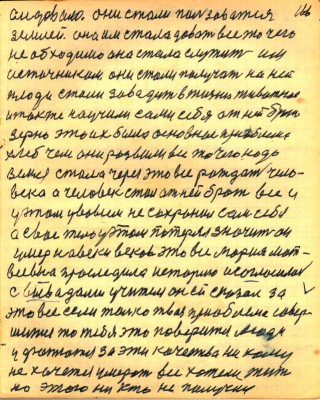 они стали пользоватся
землей она им стала довать все то чего
не обходимо она стала служить им
источником они стали получат на ней
плоди стали заводить в жизни животное
и так научили сами себя от ней брат
зерно это их била основное
хлеб чем они розвили все то чего надо
земля стала через это все рождат чело-
века а человек стал от ней брат все и
у этом условии не сохронил сам себя
а свое тело у этом потерял значит он
умер на веки веков это все мария мат-
веевна проследила историю и согласилас
с вивадами учителя он ей сказал за
это все если только твоя
то тебя это поверят люди
и за эти качества ни кому
не хочется умерат все хотят жит
но этого ни кто не получил